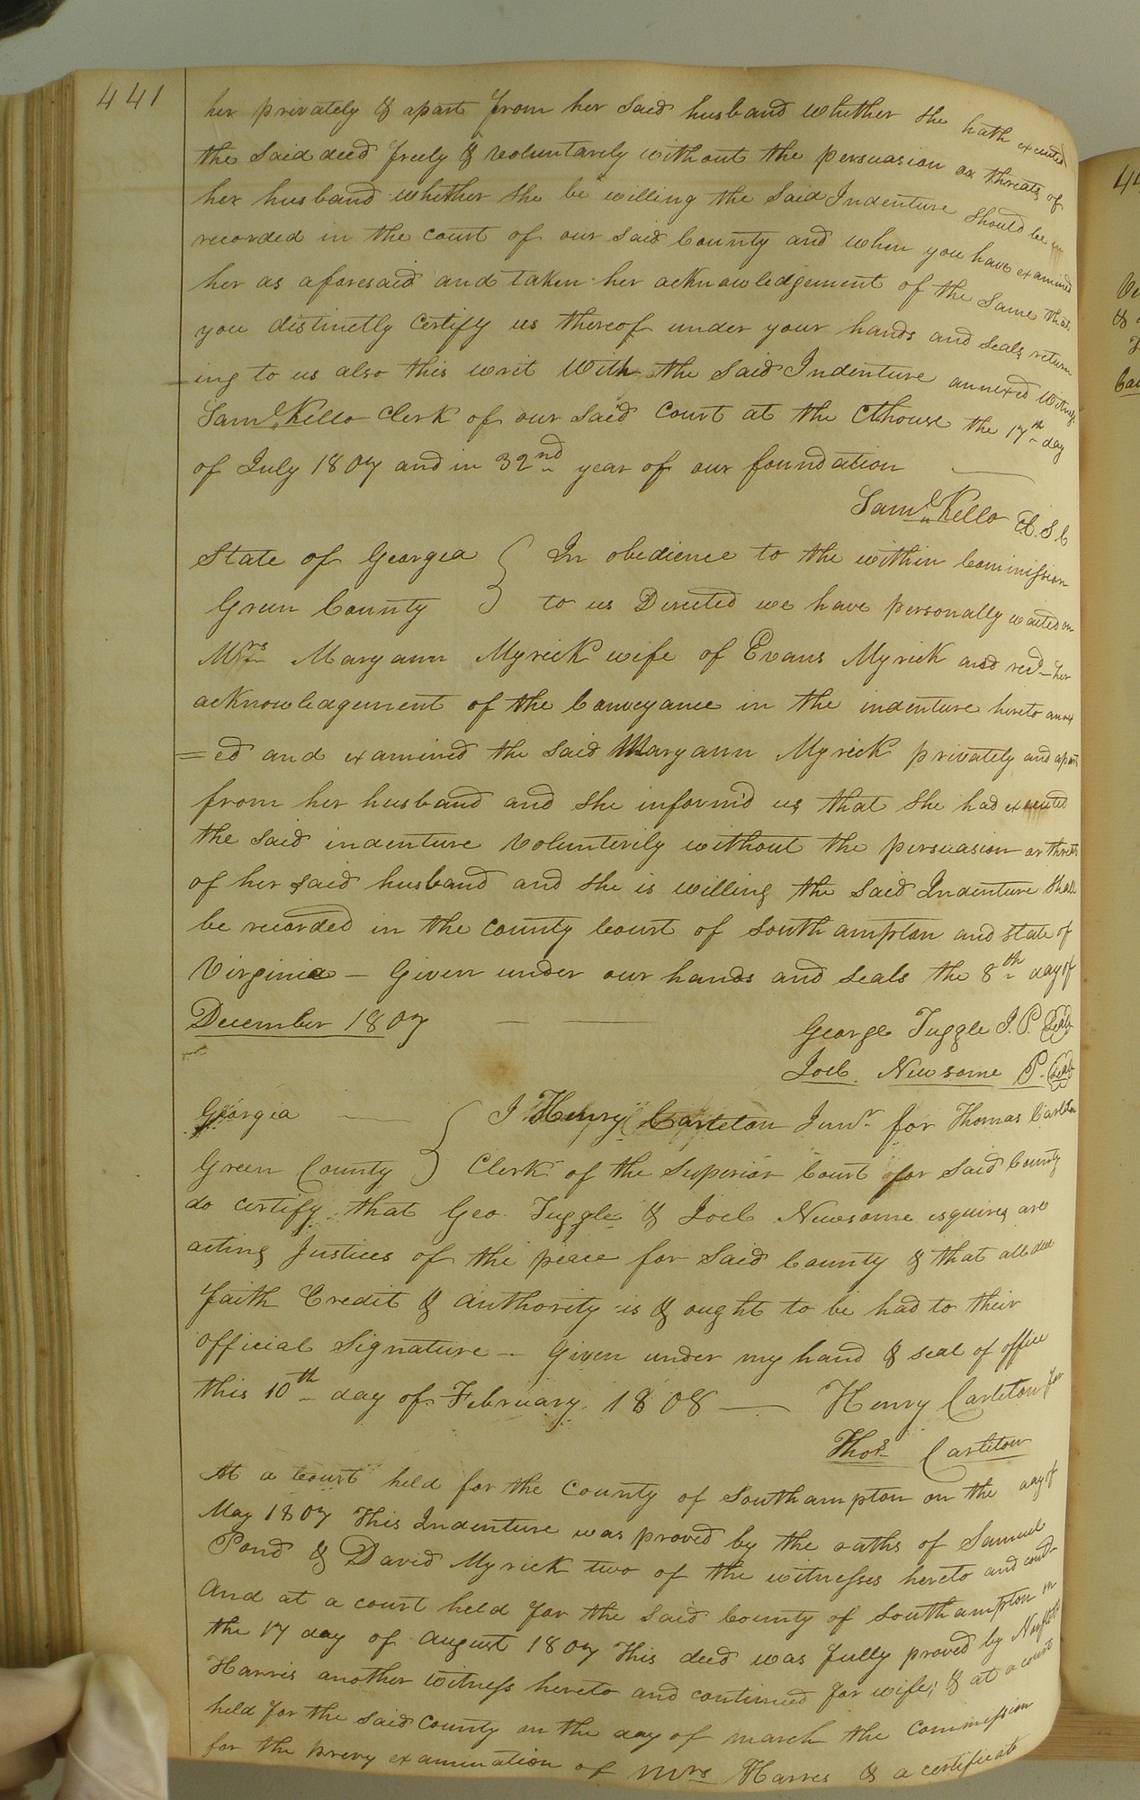 441
her privately & apart from her said husband whether she hath executed
the said deed freely & voluntarely without the persuasion or threats of
her husband whether she be willing the said Indenture should be
recorded in the court of our said County and when you have examined
her as aforesaid and taken her acknowledgement of the same that
you distinctly certify us thereof under your hands and seals return
-ing to us also this writ With the said Indenture annexed Witness
Saml. Kello Clerk of our said Court at the Cthouse the 17th day
of July 1807 and in 32nd year of our foundation
Saml. Kello Cl. S. C
State of Georgea } In obedience to the within Commission
Green County } to us Directed we have personally waited on
Mrs Maryann Myrick wife of Evans Myrick and recd. her
acknowledgement of the Conveyance in the indenture hereto annex
=ed and examined the said Maryann Myrick privately and apart
from her husband and she inform'd us that she had executed
the said indenture Volunterily without the persuasion or threats
of her said husband and she is willing the said Indenture shall
be recorded in the county Court of Southampton and state of
Virginia — Given under our hands and seals the 8th day of
December 1807 — —
George Tuggle J. P. (Seal)
Joel. Newsome P. (Seal)
Georgia — } I Henry Carleton Junr for Thomas Carleton
Green County } Clerk of the Superior Court for said County
do certify that Geo. Tuggle & Joel Newsome esquires are
acting Justices of the peace for said County & that all due
faith Credit & authority is & ought to be had to their
official Signature — Given under my hand & seal of office
this 10th day of February 1808 — Henry Carleton for
Thos. Carleton
At a Court held for the County of Southampton on the day of
May 1807 This Indenture was proved by the oaths of Samuel
Pond & David Myrick two of the witnesses hereto and contd.
And at a court held for the said County of Southampton on
the 17 day of August 1807 This deed was fully proved by
Harris another witness hereto and continued for wife; & at a court
held for the said County on the day of march the commission
for the privy examination of Mrs Harres & a certificate